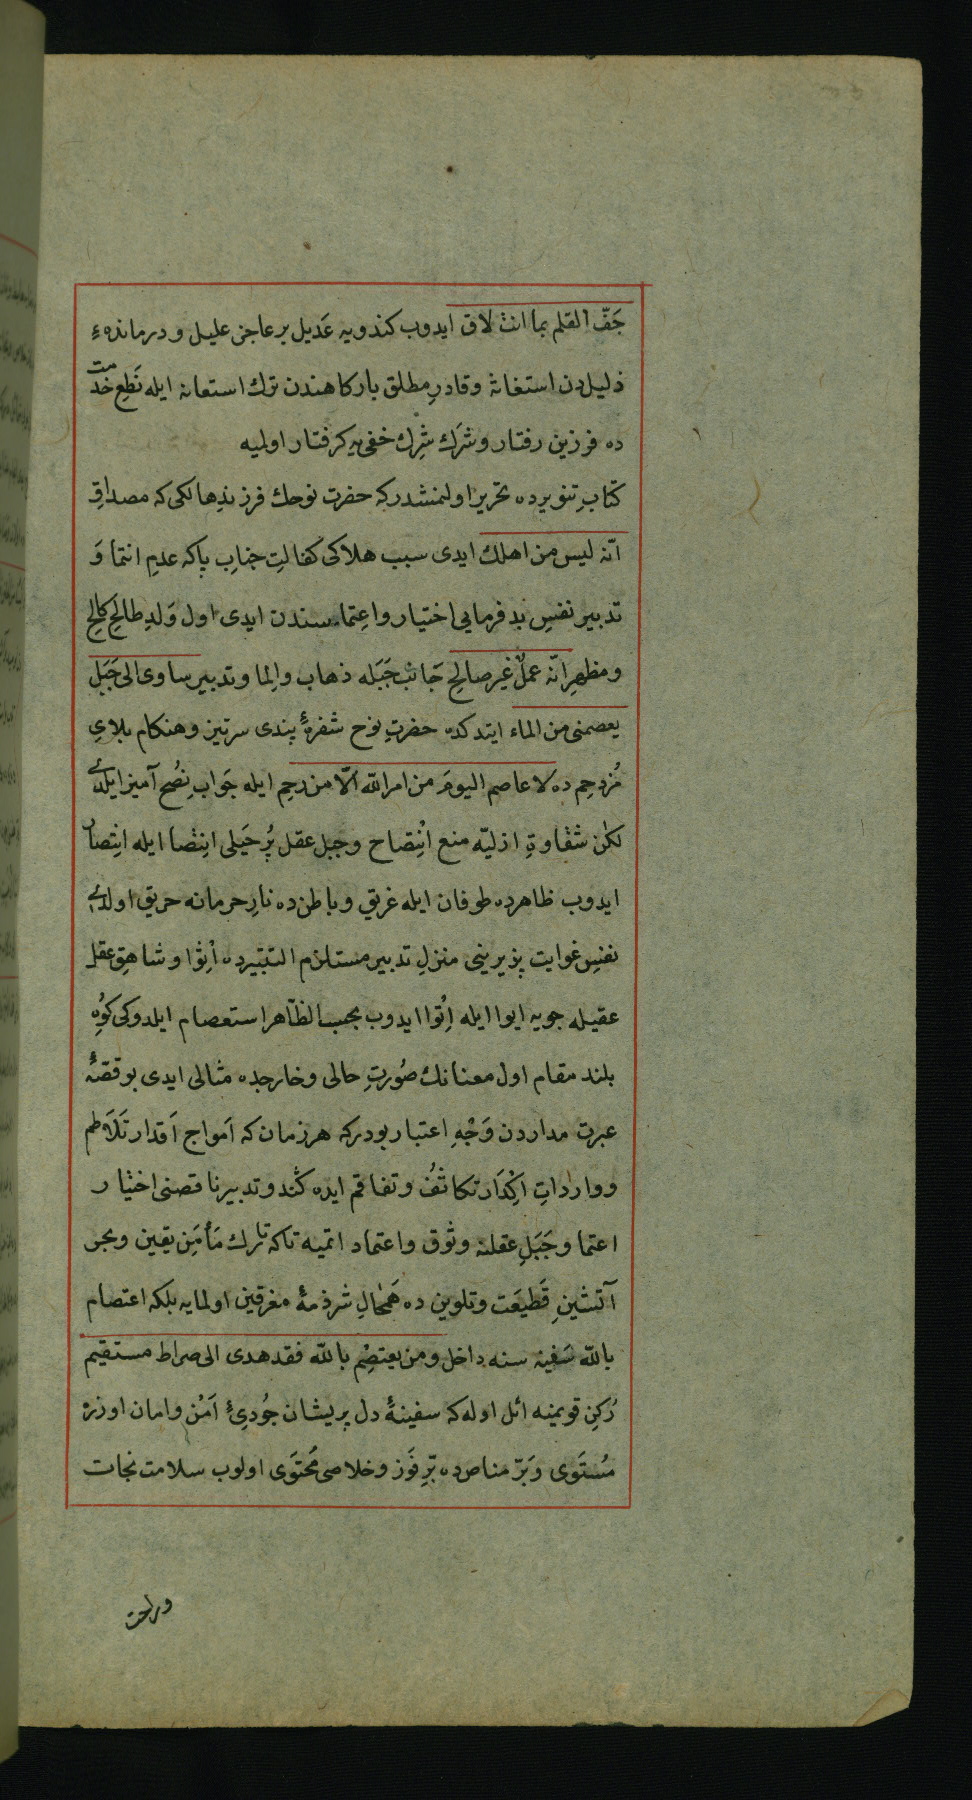 جَفّ القلم بما انت لاق ايدوب كندويه عَديل بر عاجز عليل و درمانده‌ء
ذليلدن استغاثه وقادرِ مطلق باركاهندن ترك استعانه ايله نَطعِ خدمت
ده فرزين رفتار وشَرَك شِرك خفى‌يه كرفتار اوليه
كتابِ تنويرده تحرير اولنمشدركه حضرت نوحك فرزندِ هالكى كه مصداقِ
انّه ليس من اهلك ايدى سبب هلاكى كفالتِ جنابِ پاكه عدمِ انتما وَ
تدبير نفسِ بد فرمايى اختيار واعِتماسندن ايدى اول وَلدِ طالحِ كالح
ومظهرِ انّه عملٌ غير صالحٍ جَانب جَبَله ذهاب والِما وتدبير ساوى الى جَبَلٍ
يعصمنى من الماء ايتدكده حضرتِ نوح شفرهٔ پندى سرتيز وهنكام بلاىِ
مُزدحِم ده لا عاصم اليومَ من امر الله الّا من رحِم ايله جَواب نصُح آميز ايلدى
لكن شقاوةِ ازليّه منع انِتصاح وجبل عقل پُر حَيلى انِتصا ايله انِتصار
ايدوب ظاهرده طوفان ايله غريق و باطن ده نارِ حرمانه حريق اولدى
نفسِ غوايت پذيرينى منزلِ تدبير مستلزم التتبيرده اثِوا وشاهقِ عقل
عقيله جويه ايوا ايله اِتُوا ايدوب بحسب الظّاهر استعصام ايلدوكى كوُهِ
بلند مقام اول معنانك صُورتِ حالى وخارجده مثالى ايدى بو قصّهٔ
عبرت مداردن وَجْهِ اعتبار بودركه هر زمان كه اَمواج اَقدار تَلَاطم
و وارداتِ اكْدَار تكاثفُ وتفاقم ايده كَند وتدبير ناقصنى اختيار
اعتما وجَبَلِ عقلنه وثوق واعتماد اتميه تاكه تارك مَأمَنِ يقين وبحر
آتشينِ قَطيعَت وتلوين ده هَمحالِ شرذمهٔ مغرقين اولمايه بلكه اعتصام
بالله سَفينه سنه داخل ومن يعتصِم بالله فقد هدى الى صراط مستقيم
رُكنِ قويمنه ائل اوله كه سفينهٔ دل پريشان جُودىِٔ اَمْن وامان اوزره
مُستَوى وَبَرّ مناص ده بّرِ فَوز وخلاصى مُحتَوى اولوب سلامت نجات
وراحت